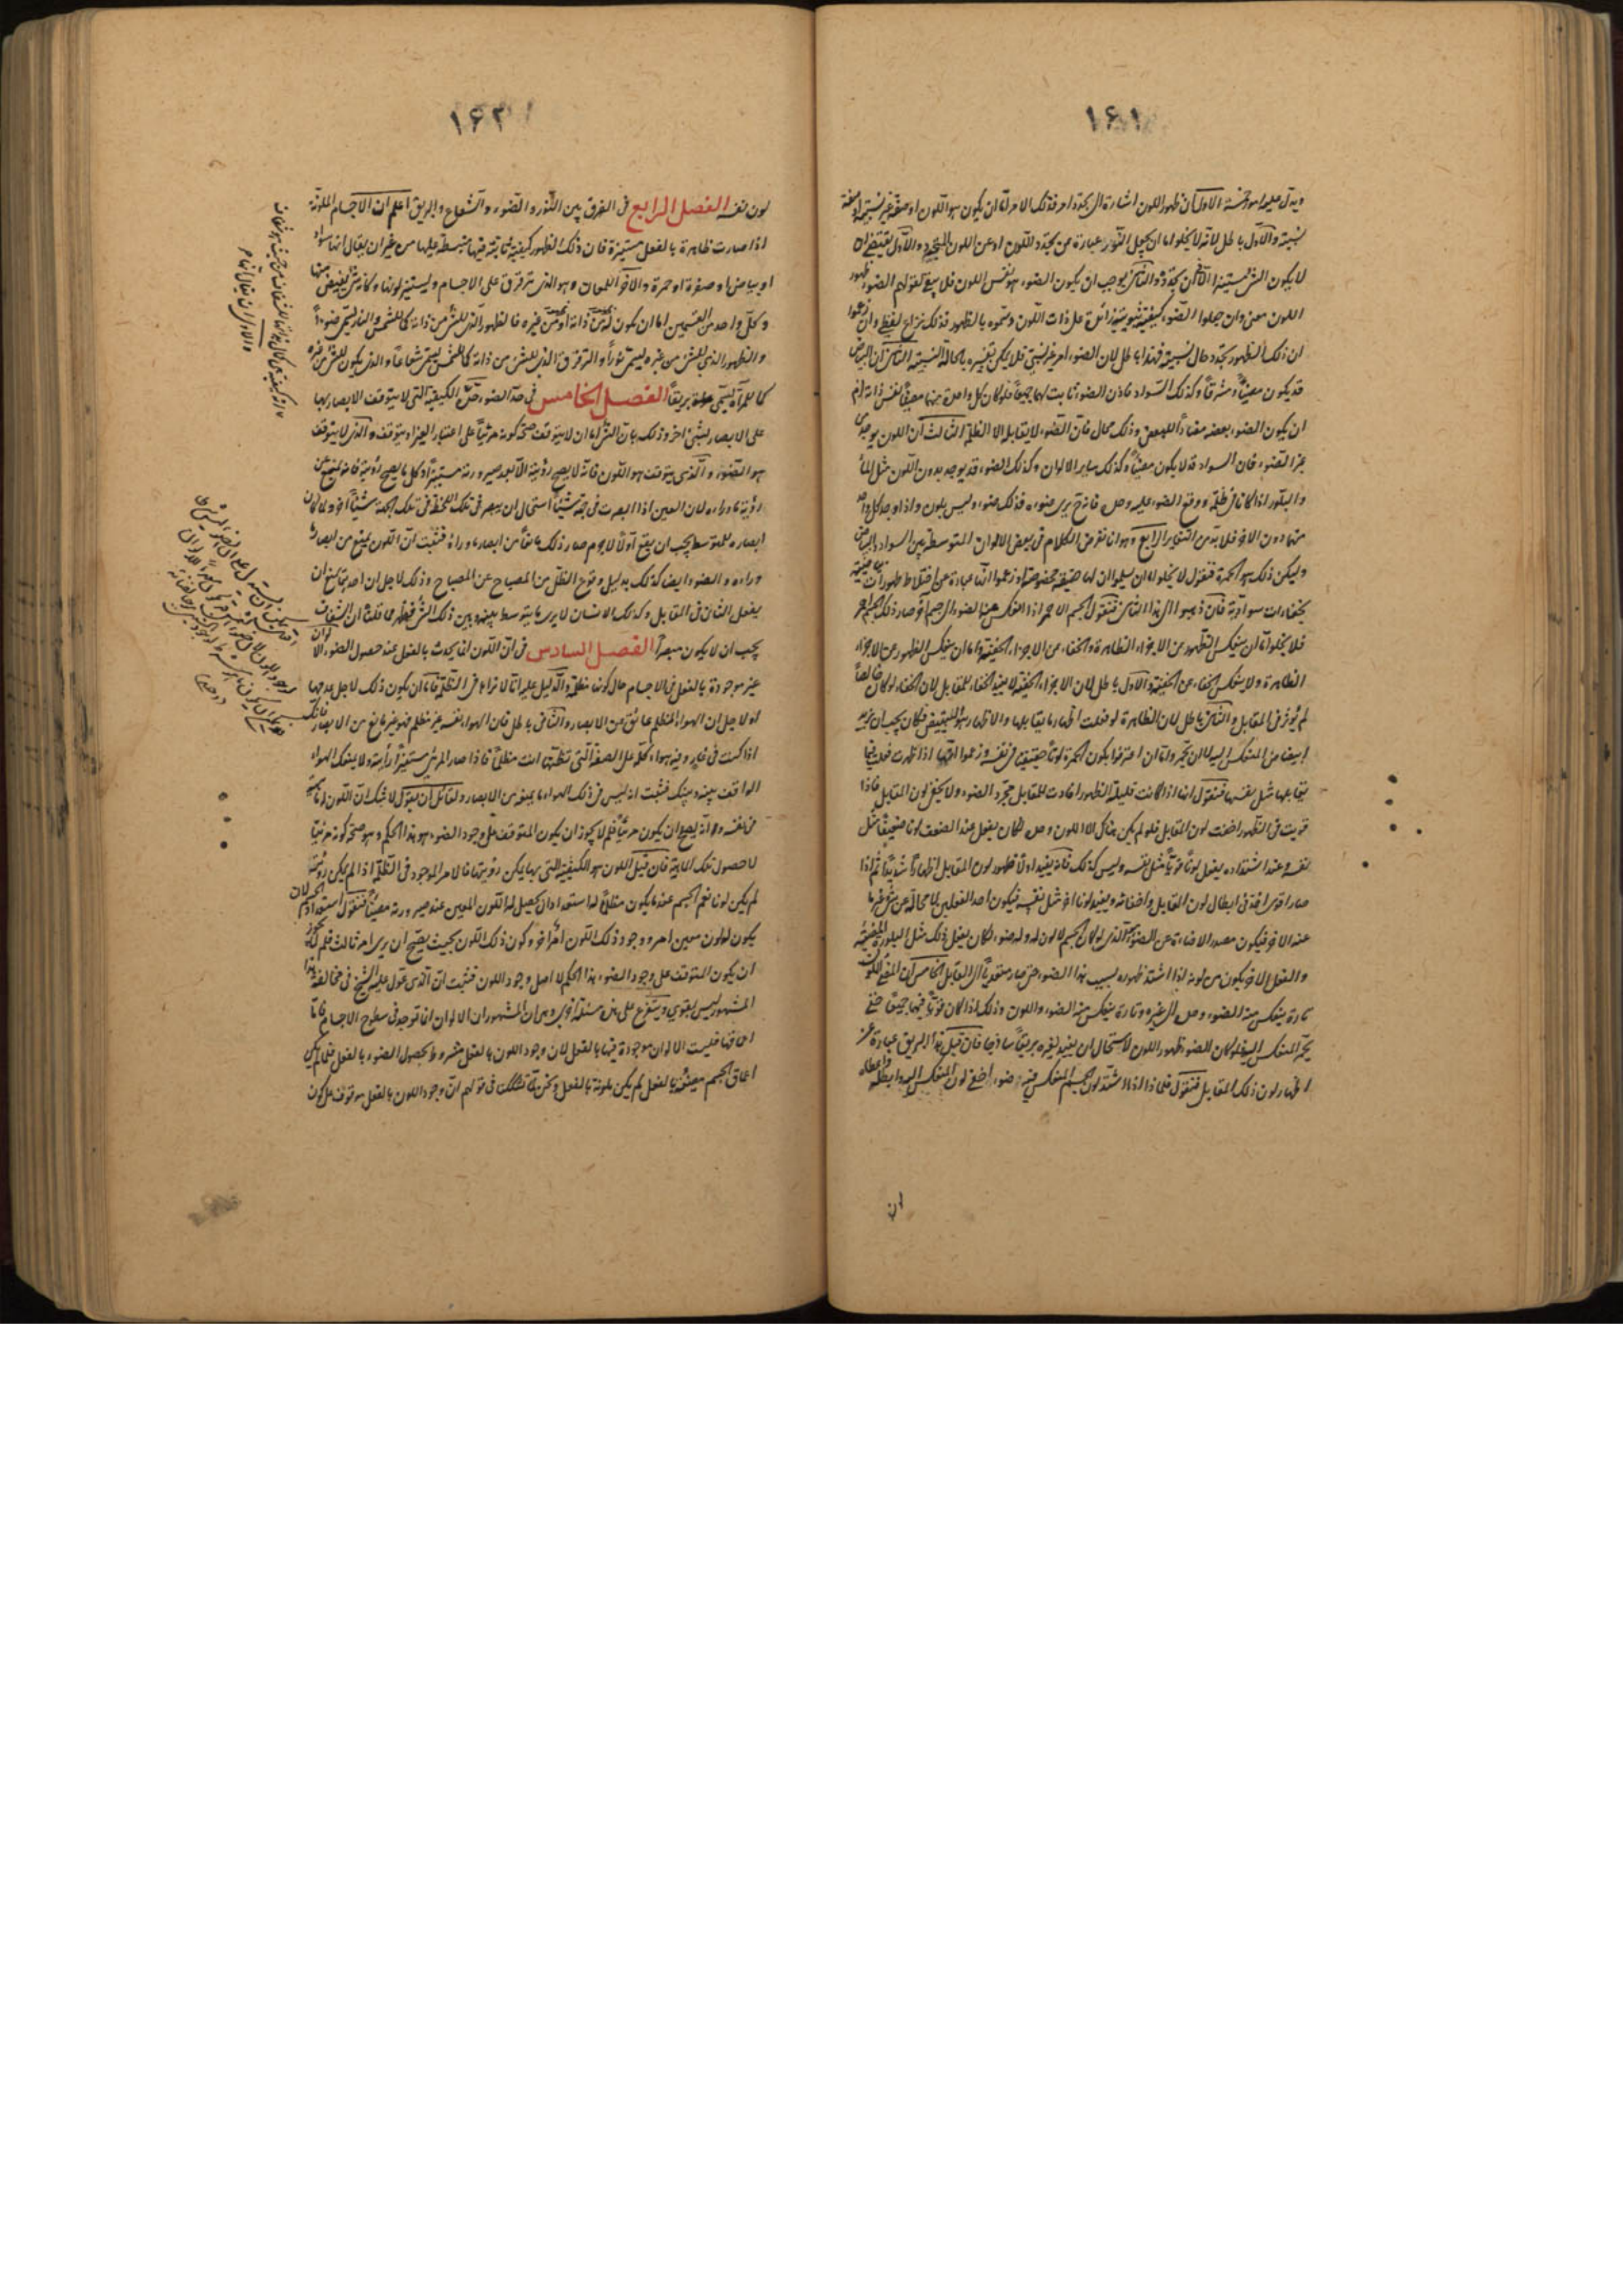 ١۶١
ويدل عليه امور خمسة الاول ان ظهور اللون اشارة الى تجدد امر فذلك الامر اما ان يكون هو اللون او صفة غير نسبية او صفة
نسبية والاول باطل لانه لا يخلو اما ان يجعل النور عبارة عن تجدد اللون او عن اللون المتجدد والاول يقتضى ان
لا يكون الشئ مستنيرا الا آن تجدده والثانى يوجب ان يكون الضوء هو نفس اللون فلا يبقى لقولهم الضوء ظهور
اللون معنى وان جعلوا الضوء كيفية ثبوتية زائدة على ذات اللون وسموه بالظهور فذلك نزاع لفظى وان زعموا
ان ذلك الظهور تجدد حال نسبية فهذا باطل لان الضوء امر غير نسبى فلا يمكن تفسيره بالحالة النسبية الثانى ان البياض
قد يكون مضيئا ومشرقا وكذلك السواد فاذن الضوء ثابت لهما جميعا فلو كان كل واحد منهما مضيئا لنفس ذاته لزم
ان يكون الضوء بعضه مضادا للبعض وذلك محال فان الضوء لا يقابله الا الظلمة الثالث ان اللون يوجد من
غير الضوء فان السواد قد لا يكون مضيئا وكذلك ساير الالوان وكذلك الضوء قد يوجد بدون اللون مثل الماء
والبلور اذا كانا فى ظلمة ووقع الضوء عليه وحده فانه ح يرى ضوءه فذلك ضوء وليس بلون واذا وجد كل واحد
منهما دون الآخر فلا بد من التغاير الرابع وهو انا نفرض الكلام فى بعض الالوان المتوسطة بين السواد والبياض
وليكن ذلك هو الحمرة فنقول لا يخلو اما ان يسلموا ان لها حقيقة مخصوصة او زعموا انها عبارة عن اختلاط ظهورات بياضية
بخفاءات سوادية فان ذهبوا الى هذا الثانى فنقول الجسم الاحمر اذا انعكس عنه الضوء الى جسم آخر وصار ذلك الجسم احمر
فلا يخلو اما ان ينعكس الظهور عن الاجزاء الظاهرة والخفاء عن الاجزاء الخفية واما ان ينعكس الظهور عن الاجزاء
الظاهرة ولا ينعكس الخفاء عن الخفية والاول باطل لان الاجزاء الخفية لا يفيد الخفاء للمقابل لان الخفاء لو كان خالصا
لم يؤثر فى المقابل والثانى باطل لان الظاهرة لو فعلت اظهار ما يقابلها والاظهار هو التبييض فكان يجب ان يزيد
ابيضاض المنعكس اليه لا ان تحمره واما ان اعترفوا بكون الحمرة لونا حقيقيا فى نفسه وزعموا انها اذا ظهرت فعلت فيما
يقابلها مثل نفسها فنقول انها اذا كانت قليلة الظهور افادت للمقابل مجرد الضوء ولا يخفى لون المقابل فاذا
قويت فى الظهور اخفت لون المقابل فلو لم يكن هناك الا اللون وحده لكان يفعل عند الضعف لونا ضعيفا مثل
نفسه وعند اشتداده يفعل لونا قويا مثل نفسه وليس كذلك فانه يفيد اولا ظهور لون المقابل اظهارا شديدا ثم اذا
صار اقوى اخذ فى ابطال لون المقابل واخفائه ويفيد لونا اخر مثل نفسه فيكون احد الفعلين لا محالة عن شئ غير ما
عنه الآخر فيكون مصدر الاضاءة عن الضوء الذى لو كان الجسم لا لون له وله ضوء لكان يفعل ذلك مثل البلورة المضيئة
والفعل الآخر يكون من لونه اذا اشتد ظهوره بسبب هذا الضوء حتى صار متعديا الى المقابل الخامس ان المضئ للون
تارة ينعكس منه الضوء وحده الى غيره وتارة ينعكس منه الضوء واللون وذلك اذا كان قويا فيهما جميعا حتى
يحمر المنعكس اليه فلو كان الضوء ظهور اللون لاستحال ان يفيد لغيره بريقا ساذجا فان قيل هذا البريق عبارة عن
اظهار لون ذلك المقابل فنقول فلماذا اذا اشتد لون الجسم المنعكس منه وضوءه اخفى لون المنعكس اليه وابطله واعطاه
لون
١۶٢
لون نفسه الفصل الرابع فى الفرق بين النور والضوء والشعاع والبريق اعلم ان الاجسام الملونة
اذا صارت ظاهرة بالفعل مستنيرة فان ذلك الظهور كيفية ثابتة فيها منبسطة عليها من غير ان يقال انها سواد
او بياض او صفرة او حمرة والآخر اللمعان وهو الذى يترقرق على الاجسام ويستر لونها وكانه شئ يفيض منها
وكل واحد من القسمين اما ان يكون له من ذاته او من غيره فالظهور الذى للشئ من ذاته كما للشمس والنار يسمى ضوءا
والظهور الذى للشئ من غيره يسمى نورا والترقرق الذى للشئ من ذاته كما للشمس يسمى شعاعا والذى يكون للشئ من غيره
كما للمرآة يسمى بريقا الفصل الخامس فى حد الضوء حد الكيفية التى لا يتوقف الابصار بها
على الابصار لشئ اخر وذلك بان المرئى اما ان لا يتوقف صحة كونه مرئيا على اعتبار الغير او يتوقف والذى لا يتوقف
هو الضوء والذى يتوقف هو اللون فانه لا يصح رؤيته الا بعد صيرورته مستنيرا وكل ما يصح رؤيته فانه يمنع عن
رؤية ما وراءه لان العين اذا ابصرت فى جهة شيئا استحال ان يبصر فى تلك اللحظة فى تلك الجهة شيئا اخر ولا كان
ابصاره للمتوسط يجب ان يقع اولا لا جرم صار ذلك مانعا من ابصار ما وراءه فثبت ان اللون يمنع من ابصار ما
وراءه والضوء ايضا كذلك بدليل وقوع الظل من المصباح عن المصباح وذلك لاجل ان احدهما يمنع ان
يفعل الثانى فى المقابل وكذلك الانسان لا يرى ما يتوسط بينه وبين ذلك الشئ فظهر مما قلنا ان الشفاف
يجب ان لا يكون مبصرا الفصل السادس فى ان اللون انما يحدث بالفعل عند حصول الضوء الالوان
غير موجودة بالفعل فى الاجسام حال كونها مظلمة والدليل عليه انا لا نراها فى الظلمة فاما ان يكون ذلك لاجل عدمها
او لاجل ان الهواء المظلم عائق عن الابصار والثانى باطل فان الهواء نفسه غير مظلم فهو غير مانع من الابصار فانك
اذا كنت فى غار وفيه هواء كله على الصفة التى تظنها انت مظلما فاذا صار المرئى مستنيرا رأيته ولا يمنعك الهواء
الواقف بينه وبينك فثبت انه ليس فى ذلك الهواء ما يمنعه من الابصار ولقائل ان يقول لا شك ان اللون له ماهية
فى نفسه وانه يصح ان يكون مرئيا فلم لا يجوز ان يكون المتوقف على وجود الضوء هو هذا الحكم وهو صحة كونه مرئيا
لا حصول تلك الماهية فان قيل اللون هو الكيفية التى بها يمكن رؤيتها فالامر الموجود فى الظلمة اذا لم يكن رؤيته
لم يكن لونا نعم الجسم عند ما يكون مظلما له استعداد ان يحصل له اللون المعين عند صيرورته مضيئا فنقول استعداد الجسم لان
يكون له لون معين امر ووجود ذلك اللون امر آخر وكون ذلك اللون بحيث يصح ان يرى امر ثالث فلم لا يجوز
ان يكون المتوقف على وجود الضوء هذا الحكم لا اصل وجود اللون فثبت ان الذى عول عليه الشيخ فى مخالفة هذا
المشهور ليس بقوى ويتفرع على هذه مسئلة اخرى وهى ان المشهور ان الالوان انما توجد فى سطوح الاجسام فاما
اعماقها فليست الالوان موجودة فيها بالفعل لان وجود اللون بالفعل مشروط بحصول الضوء بالفعل فلما لم يكن
اعماق الجسم مضيئة بالفعل لم يكن ملونة بالفعل ونحن لما شككنا فى قولهم ان وجود اللون بالفعل موقوف على كون